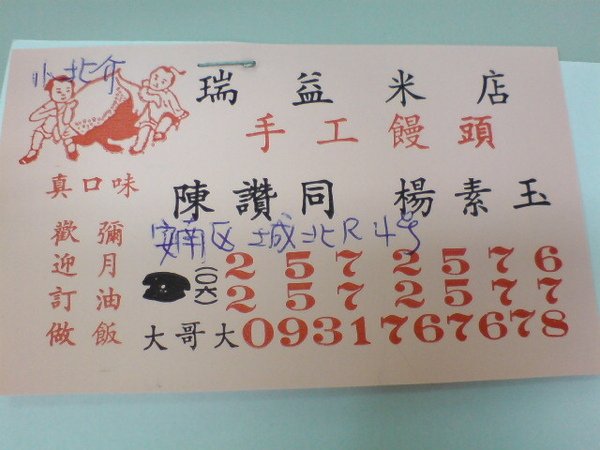 小北介
瑞益米店
手工饅頭
真口味
陳讚同 楊素玉
安南区 城北R 4号
歡迎訂做
彌月油飯
(〇六)
2572576
2572577
大哥大0931767678